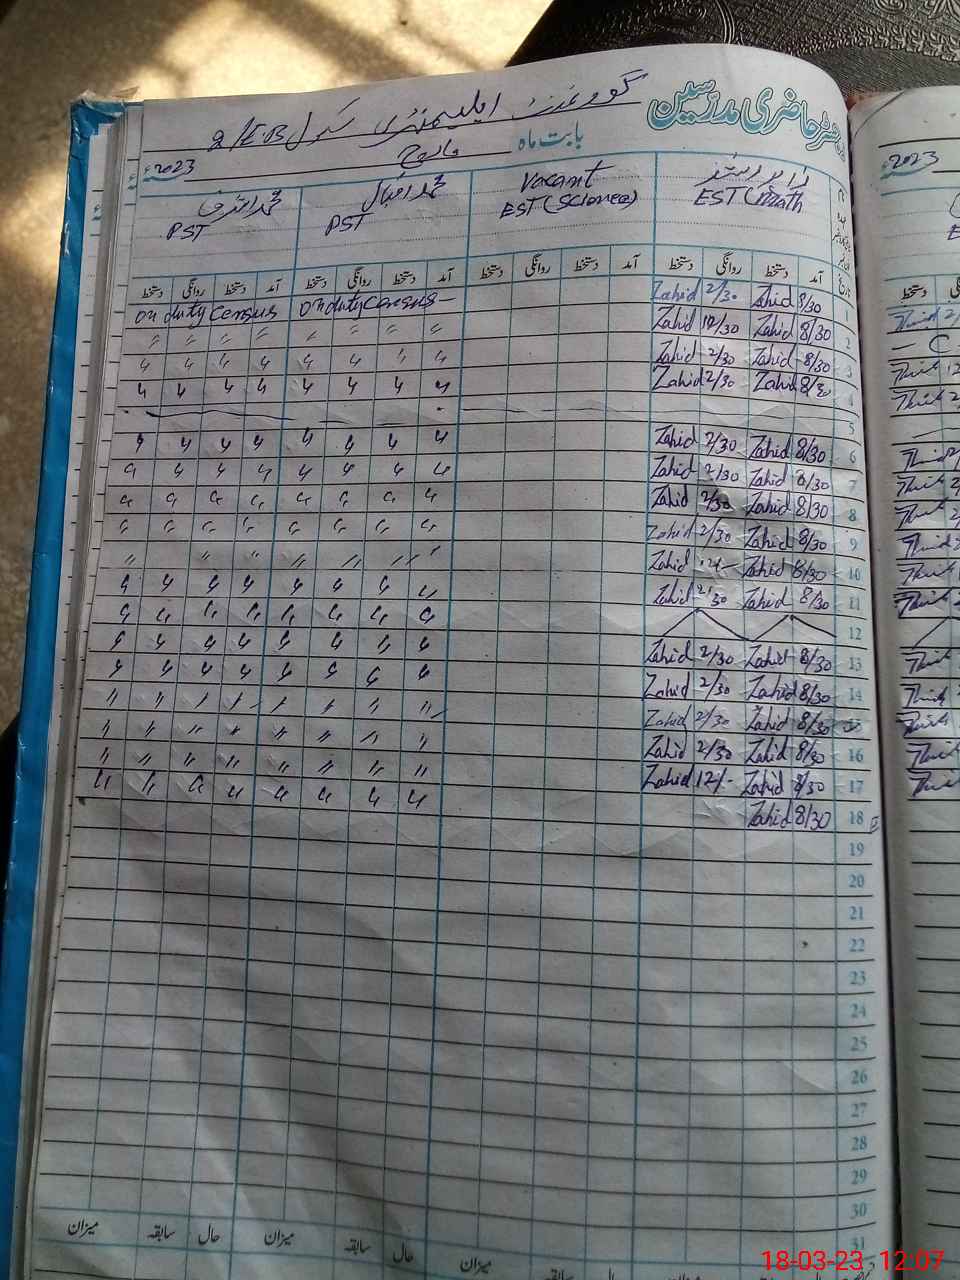 رجسٹر حاضری مدرسین
گورنمنٹ ایلیمنٹری سکول 2/E.B
بابت ماہ مارچ 2023ء
EST (Math
Vacant
EST (Science)
محمد اقبال
PST
محمد اشرف
PST
آمد دستخط روانگی دستخط آمد دستخط روانگی دستخط آمد دستخط روانگی دستخط آمد دستخط روانگی دستخط
1 8/30 Zahid 2/30 Zahid on duty census on duty census
2 8/30 Zahid 12/30 Zahid 〃 〃 〃 〃 〃 〃 〃 〃
3 8/30 Zahid 2/30 Zahid 〃 〃 〃 〃 〃 〃 〃 〃
4 8/30 Zahid 2/30 Zahid 〃 〃 〃 〃 〃 〃 〃 〃
5
6 8/30 Zahid 2/30 Zahid 〃 〃 〃 〃 〃 〃 〃 〃
7 8/30 Zahid 2/30 Zahid 〃 〃 〃 〃 〃 〃 〃 〃
8 8/30 Zahid 2/30 Zahid 〃 〃 〃 〃 〃 〃 〃 〃
9 8/30 Zahid 2/30 Zahid 〃 〃 〃 〃 〃 〃 〃 〃
10 8/30 Zahid 12/- Zahid 〃 〃 〃 〃 〃 〃 〃
11 8/30 Zahid 2/30 Zahid 〃 〃 〃 〃 〃 〃 〃 〃
12 〃 〃 〃 〃 〃 〃 〃 〃
13 8/30 Zahid 2/30 Zahid 〃 〃 〃 〃 〃 〃 〃 〃
14 8/30 Zahid 2/30 Zahid 〃 〃 〃 〃 〃 〃 〃 〃
8/30 Zahid 2/30 Zahid 〃 〃 〃 〃 〃 〃 〃 〃
16 8/30 Zahid 2/30 Zahid 〃 〃 〃 〃 〃 〃 〃 〃
17 8/30 Zahid 12/- Zahid 〃 〃 〃 〃 〃 〃 〃 〃
18 8/30 Zahid
19
20
21
22
23
24
25
26
27
28
29
30
31
میزان حال سابقہ میزان حال سابقہ میزان
2023ء
دستخط
18-03-23 12:07